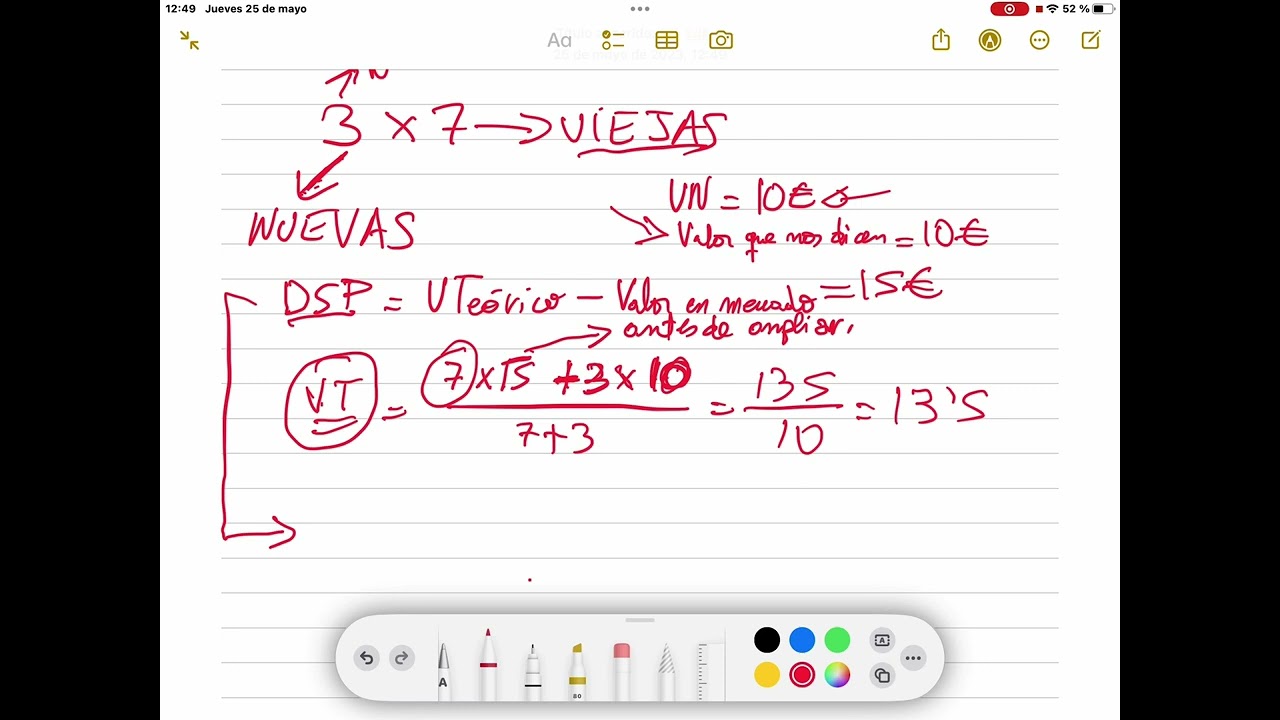 12:49 Jueves 25 de mayo
52 %
Aa
3 x 7 → VIEJAS
NUEVAS
VN = 10€
Valor que nos dicen = 10€
DSP = VTeórico - Valor en mercado = 15€
antes de ampliar.
VT = 7 x 15 + 3 x 10 / 7+3 = 135 / 10 = 13'5
A
80